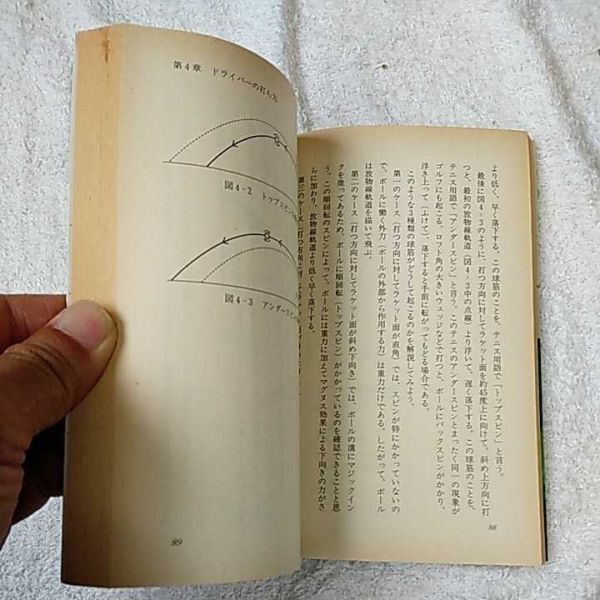 より低く、早く落下する。この球筋のことを、テニス用語で「トップスピン」と言う。
最後に図4-3のように、打つ方向に対してラケット面を約45度上に向けて、斜め上方向に打
つと、最初の放物線軌道（図4-3中の点線）より浮いて、遅く落下する。この球筋のことを、
テニス用語で「アンダースピン」と言う。このテニスのアンダースピンとまったく同一の現象が
ゴルフにも起こる。ロフト角の大きいウェッジなどで打つと、ボールにバックスピンがかかり、
浮き上って（ふけて）、落下すると手前に転がってもどる場合である。
このような3種類の球筋がどうして起こるのかを解説してみよう。
第一のケース（打つ方向に対してラケット面が直角）では、スピンが特にかかっていないの
で、ボールに働く外力（ボールの外部から作用する力）は重力だけである。したがって、ボール
は放物線軌道を描いて飛ぶ。
第二のケース（打つ方向に対してラケット面が斜め下向き）では、ボールの溝にマジックイン
クを塗ってあるため、ボールに順回転（トップスピン）がかかっているのを確認できることと思
う。この順回転のスピンによって、ボールには重力に加えてマグヌス効果による下向きの力がさ
らに加わり、放物線軌道より低く早く落下する。
第三のケース（打つ方向に対
88
第4章 ドライバーの打ち方
図4-2 トップスピン
図4-3 アンダースピン
89